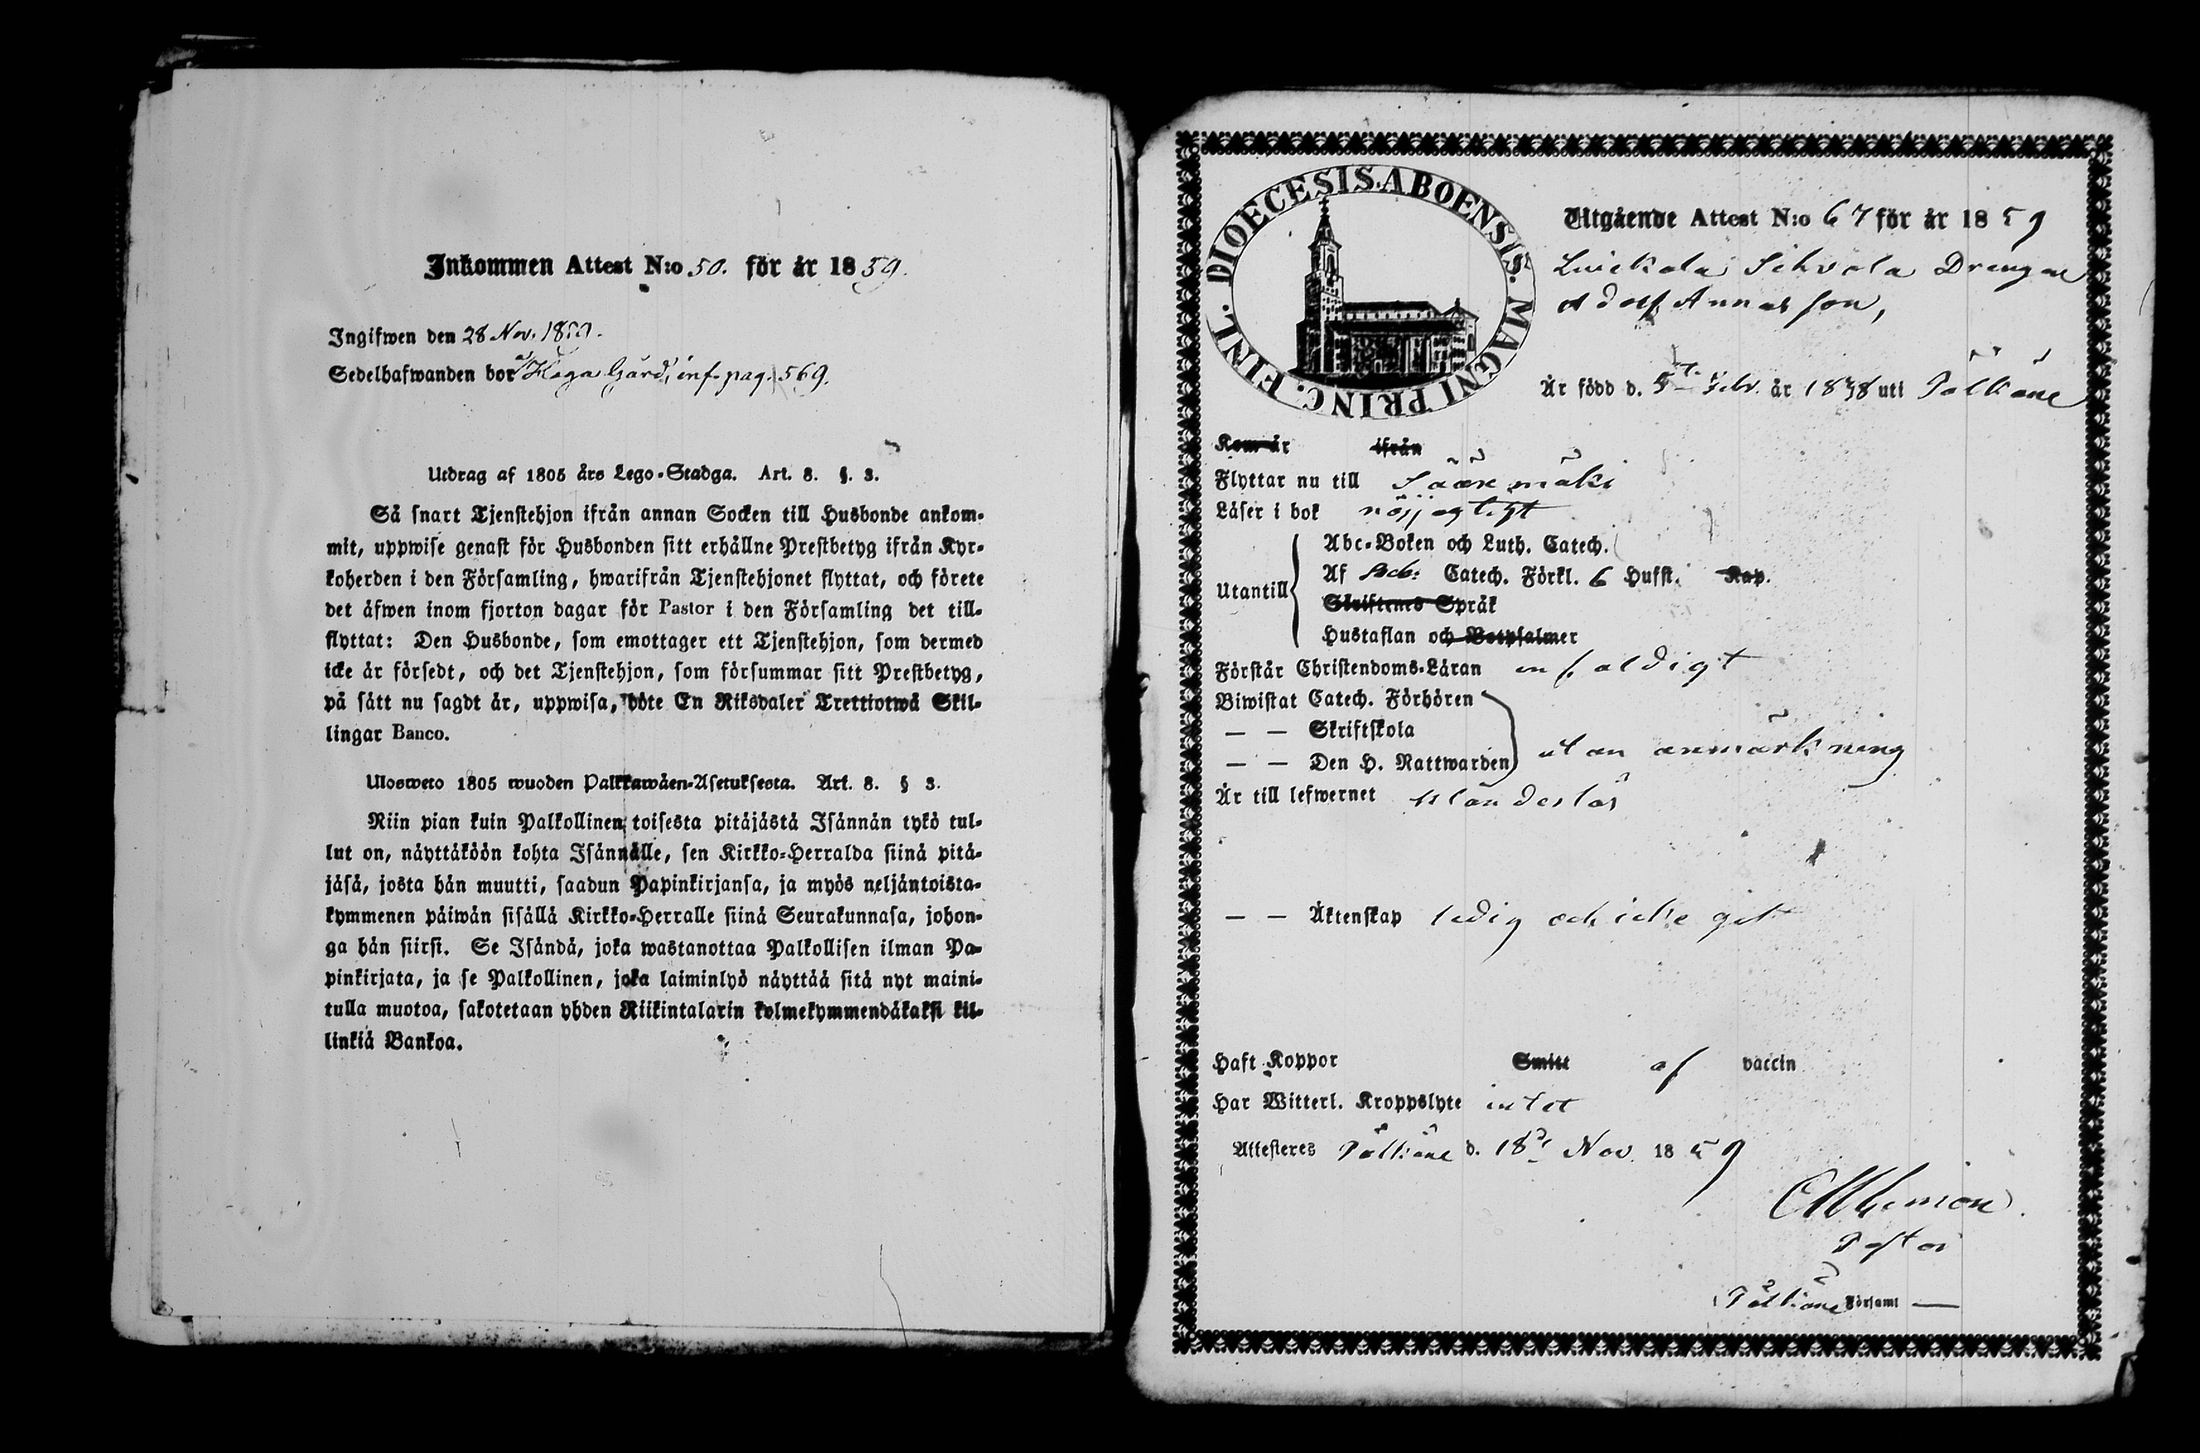 Inkommen Attest N:o 50. för år 1859.
Ingifwen den 28 Nov. 1859.
Sedelhafwanden bor å Haga Gård, inf. pag. 569.
Utdrag af 1805 års Lego-Stadga. Art. 8. §. 3.
Så snart Tjenstehjon ifrån annan Socken till Husbonde ankom-
mit, uppwise genast för Husbonden sitt erhållne Prestbetyg ifrån Kyr-
koherden i den Församling, hwarifrån Tjenstehjonet flyttat, och förete
det äfwen inom fjorton dagar för Pastor i den Församling det till-
flyttat: Den Husbonde, som emottager ett Tjenstehjon, som dermed
icke är försedt, och det Tjenstehjon, som försummar sitt Prestbetyg,
på sätt nu sagdt är, uppwisa, böte En Riksdaler Trettiotwå Skil-
lingar Banco.
Ulosweto 1805 wuoden Palkkawäen-Asetuksesta. Art. 8. § 3.
Niin pian kuin Palkollinen toisesta pitäjästä Isännän tykö tul-
lut on, näyttäköön kohta Isännälle, sen Kirkko-Herralda siinä pitä-
jäsä, josta hän muutti, saadun Papinkirjansa, ja myös neljäntoista-
kymmenen päiwän sisällä Kirkko-Herralle siinä Seurakunnasa, johon-
ga hän siirsi. Se Isändä, joka wastanottaa Palkollisen ilman Pa-
pinkirjata, ja se Palkollinen, joka laiminlyö näyttää sitä nyt maini-
tulla muotoa, sakotetaan yhden Riikintalarin kolmekymmendäkaksi kil-
linkiä Bankoa.
DIOECESIS. ABOENSIS. MAGNI PRINC. FINL.
Utgående Attest N:o 67 för år 1859
Luikala Sihvola Drengen
Adolf Annasson,
Är född d. 5te Febr. år 1838 uti Pälkäne
Kom år ifrån
Flyttar nu till Sääxmäki
Läser i bok nöjjagtigt
Utantill
Abc-Boken och Luth. Catech.
Af Catech. Förkl. 6 Hufst. Kap.
Skriftenes Språk
Hustaflan och Botpsalmer
Förstår Christendoms-Läran enfaldigt
Biwistat Catech. Förhören
— — Skriftskola
— — Den H. Nattwarden
utan anmärkning
Är till lefwernet klanderlös
— — Äktenskap ledig och icke gift
Haft Koppor Smitt af vaccin
Har Witterl. Kroppslyte intet
Attesteres Pälkäne d. 18de Nov. 1859
Pastor
Pälkäne Församl —